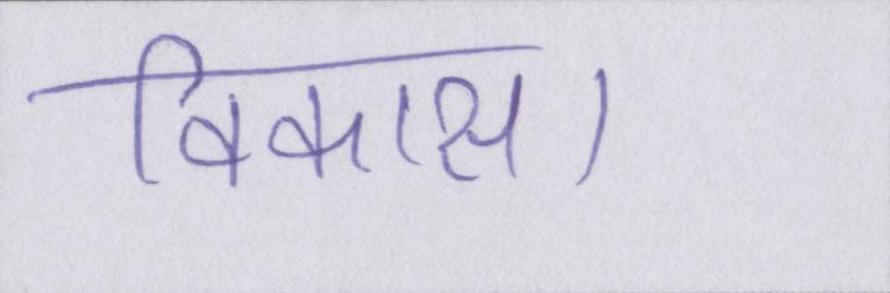 विकास।